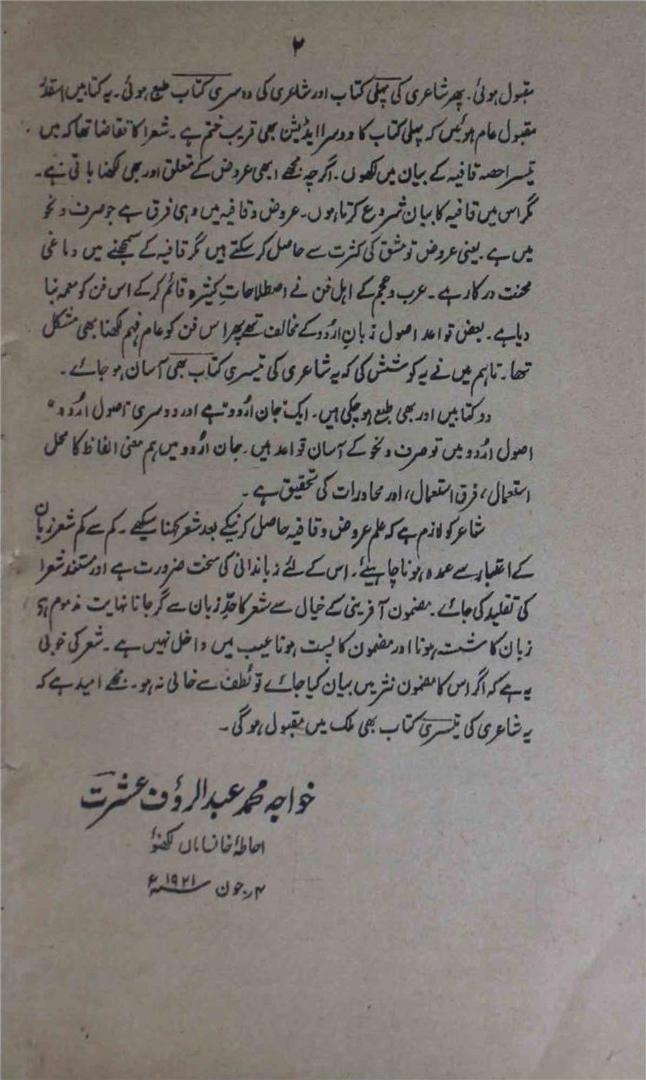 ۲
مقبول ہوئی۔ پھر شاعری کی پہلی کتاب اور شاعری کی دوسری کتاب طبع ہوئی۔ یہ کتابیں اسقدر
مقبول عام ہوئیں کہ پہلی کتاب کا دوسرا ایڈیشن بھی قریب ختم ہے۔ شعرا کا تقاضا تھا کہ میں
تیسرا حصہ قافیہ کے بیان میں لکھوں۔ اگرچہ مجھے ابھی عروض کے متعلق اور بھی لکھنا باقی ہے۔
مگر اس میں قافیہ کا بیان شروع کرتا ہوں۔ عروض و قافیہ میں وہی فرق ہے جو صرف و نحو
میں ہے یعنی عروض تو مشق کی کثرت سے حاصل کر سکتے ہیں مگر قافیہ کے سمجھنے میں دماغی
محنت درکار ہے۔ عرب و عجم کے اہل فن نے اصطلاحات کثیرہ قائم کر کے اس فن کو معمہ بنا
دیا ہے۔ بعض قواعد اصول زبان اُردو کے مخالف تھے پھر اس فن کو عام فہم لکھنا بھی مشکل
تھا۔ تاہم میں نے یہ کوشش کی کہ یہ شاعری کی تیسری کتاب بھی آسان ہو جائے۔
دو کتابیں اور بھی طبع ہو چکی ہیں۔ ایک جان اُردو ہے اور دوسری اصول اُردو۔
اصول اُردو میں تو صرف و نحو کے آسان قواعد ہیں۔ جان اُردو میں ہم معنی الفاظ کا محل
استعمال، فرق استعمال، اور محاورات کی تحقیق ہے۔
شاعر کو لازم ہے کہ علم عروض و قافیہ حاصل کرنیکے بعد شعر کہنا سیکھے۔ کم سے کم شعر زبان
کے اعتبار سے عمدہ ہونا چاہیئے۔ اس کے لئے زباندانی کی سخت ضرورت ہے اور مستند شعرا
کی تقلید کی جائے۔ مضمون آفرینی کے خیال سے شعر کا حدِّ زبان سے گر جانا نہایت مذموم ہے
زبان کا شست ہونا اور مضمون کا پست ہونا عیب میں داخل نہیں ہے۔ شعر کی خوبی
یہ ہے کہ اگر اس کا مضمون نثر میں بیان کیا جائے تو لُطف سے خالی نہ ہو۔ مجھے امید ہے کہ
یہ شاعری کی تیسری کتاب بھی ملک میں مقبول ہوگی۔
خواجہ محمد عبدالرؤف عشرت
احاطۂ خانساماں لکھنؤ
۴ر جون ۱۹۲۱ء